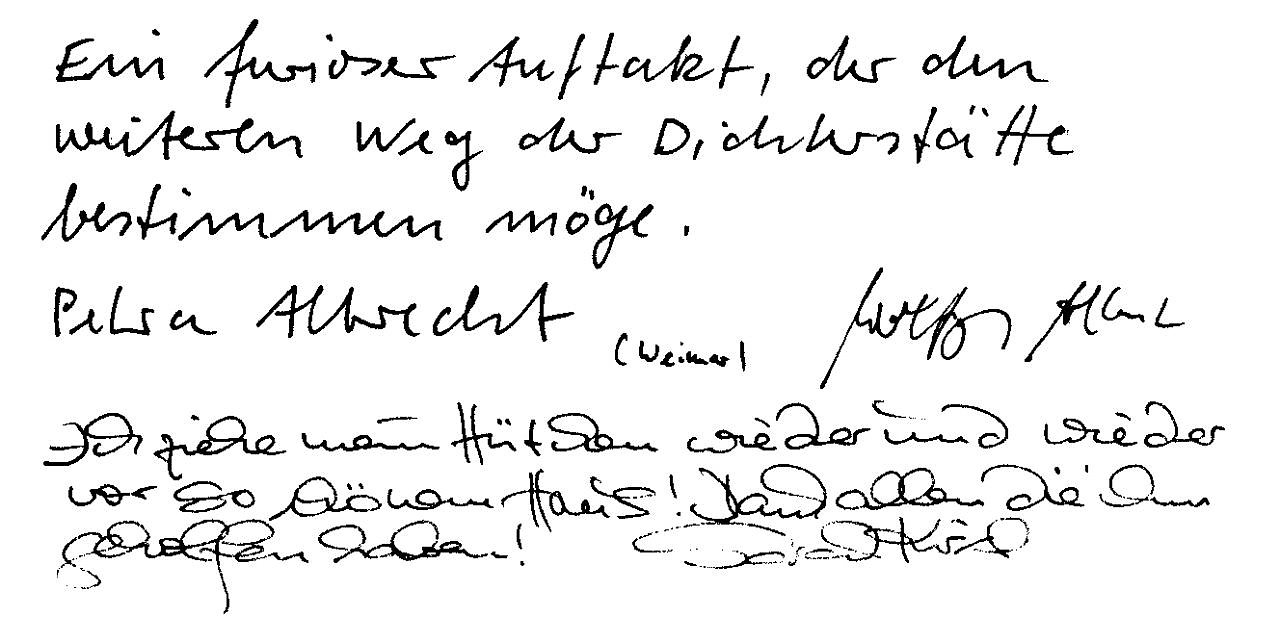 Ein furioser Auftakt, der den
weiteren Weg der Dichterstätte
bestimmen möge.
Petra Albrecht
(Weimar)
Ich ziehe mein Hütchen wieder und wieder
vor so Haus! Dank allen die ihm
geholfen haben! Sarah Kirsch